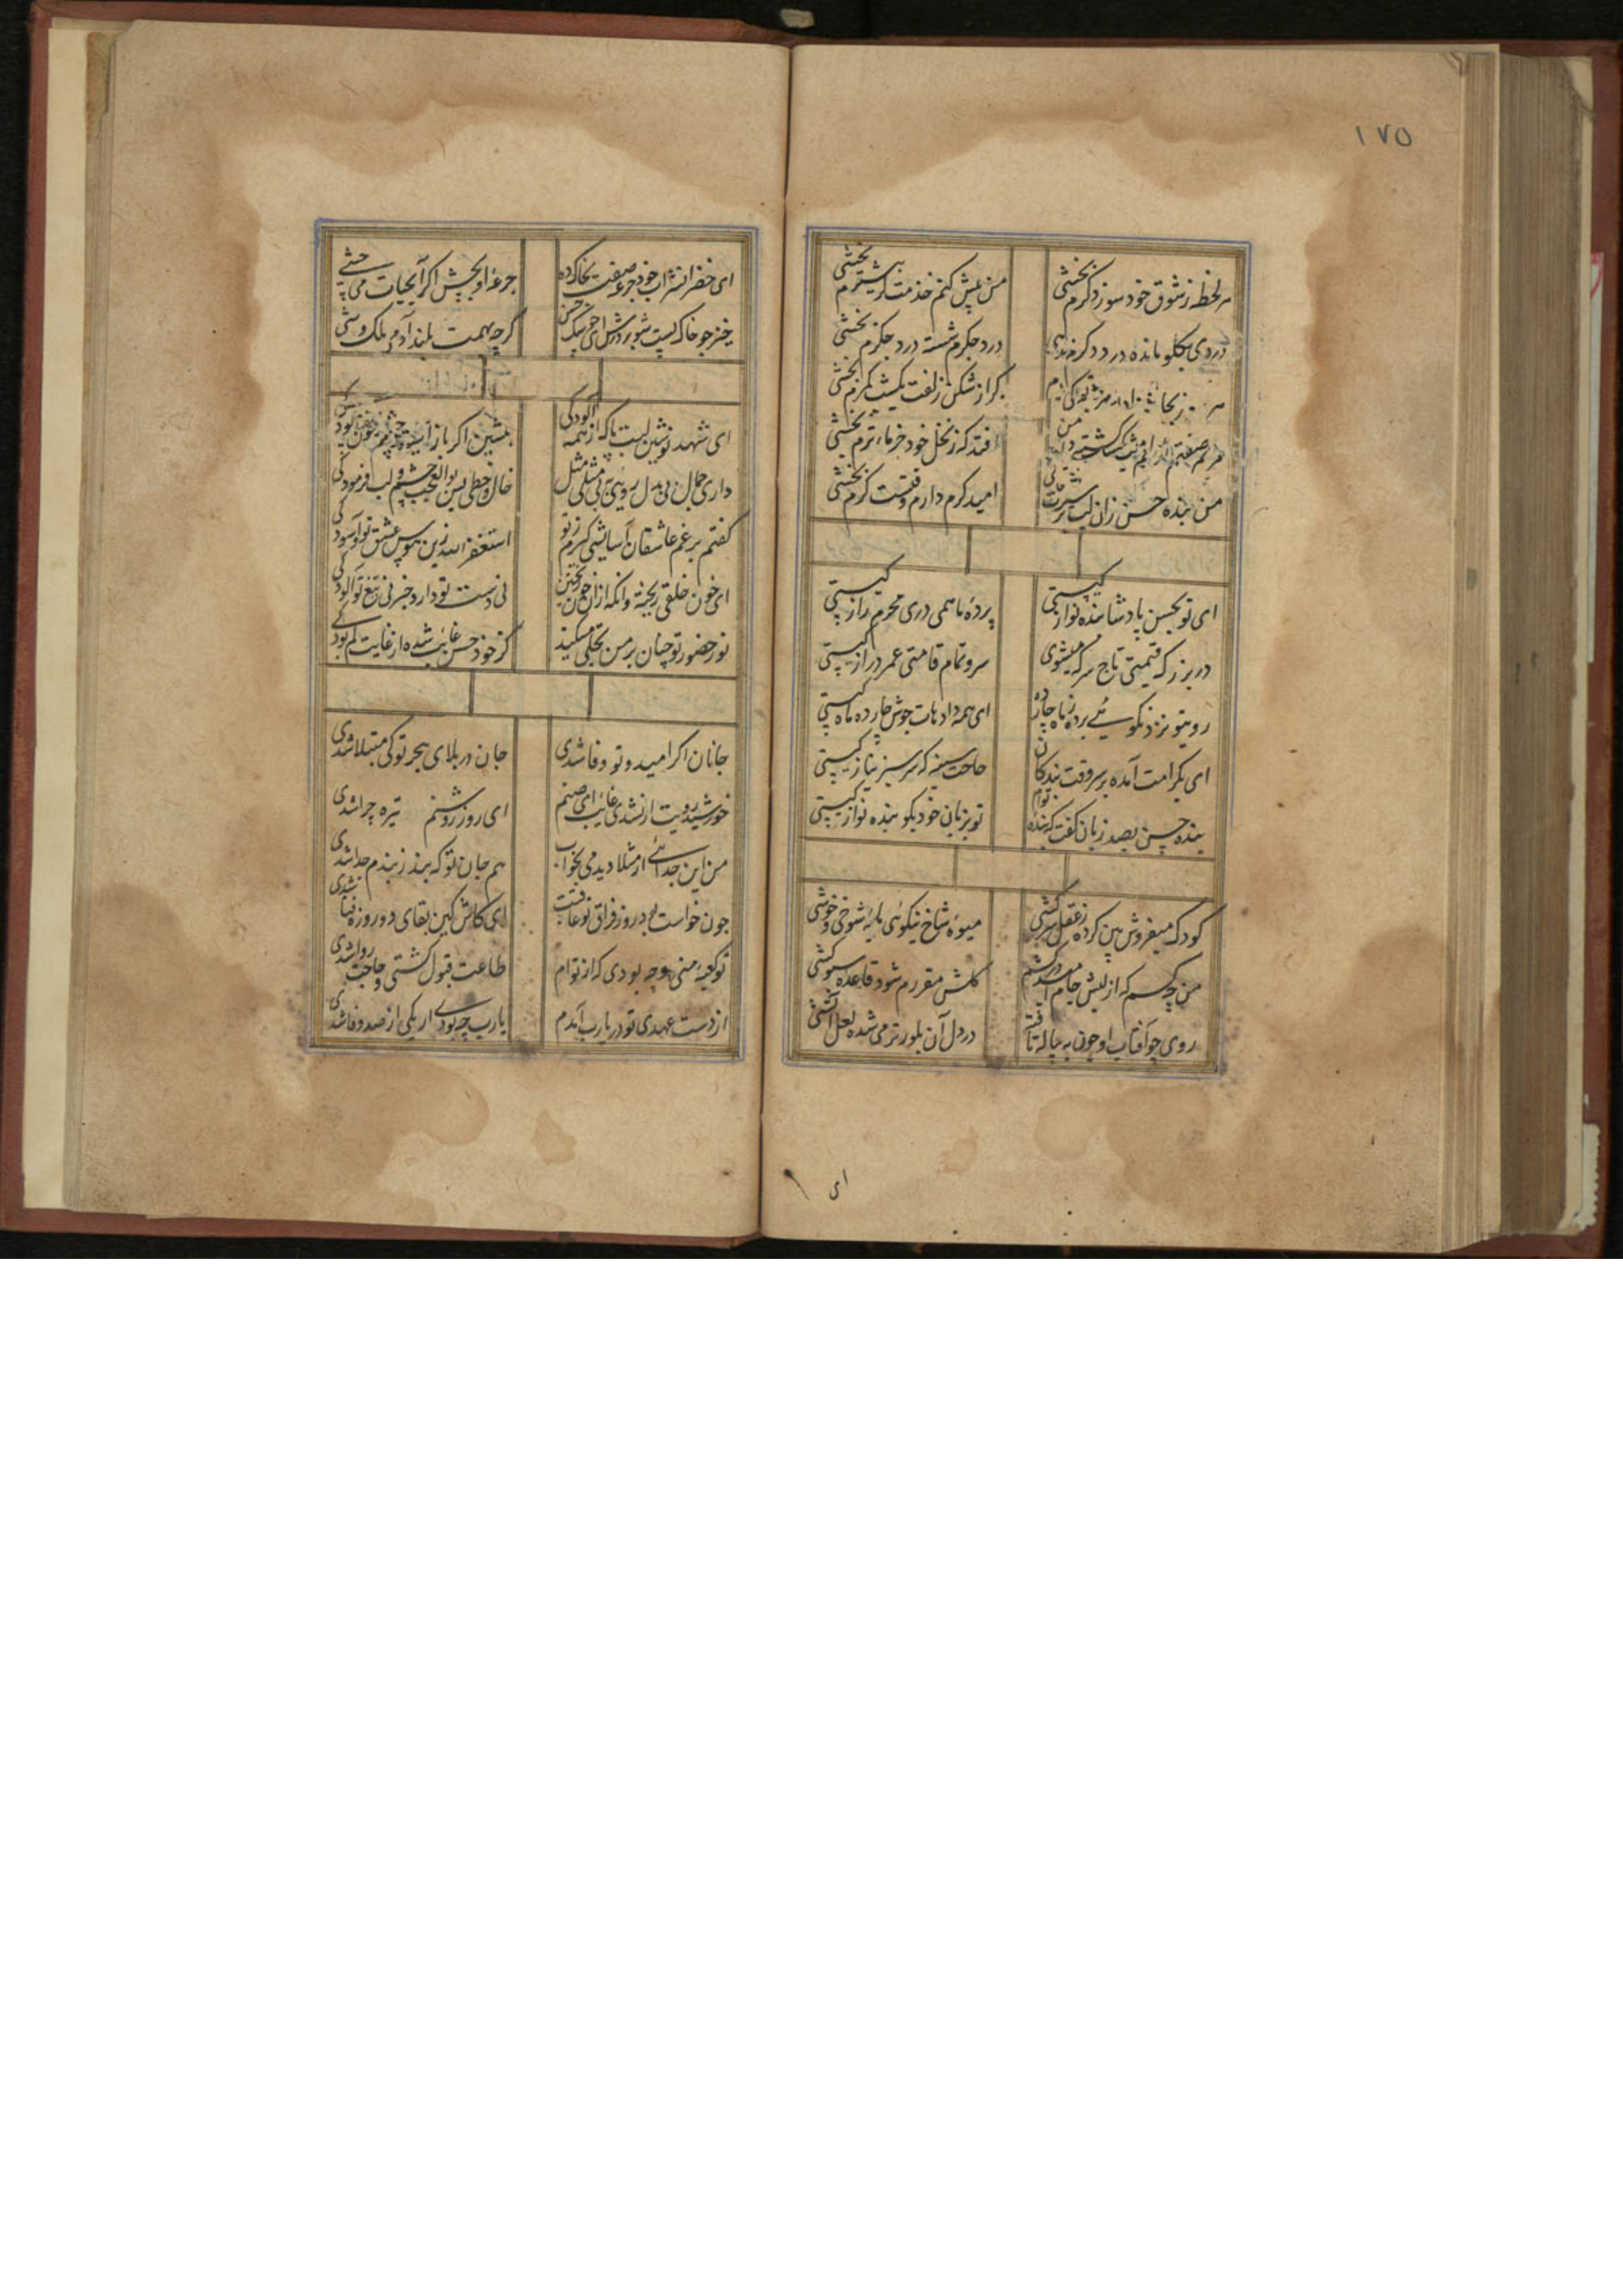 ۱۷۵
هر لحظه ز شوق خود سوز دکرم بخشی
من بیش کنم خدمت بیشترم بخشی
دردی بکلو مانده درد دکرم
درد جکرم شسته درد جکرم بخشی
کر از شکن زلفت یکشب کمرم بخشی
افتد که ز نخل خود خرماء ترم بخشی
من بنده حسن زان لب
امید کرم دارم وقتست کرم بخشی
ای تو بحسن پادشا بنده نواز کیستی
پردهٔ ما همی دری محرم راز کیستی
در بزرکه قیمتی تاج سر که میشوی
سرو تمام قامتی عمر دراز کیستی
روی تو نزد نکوئی برده ز ماه چارده
ای همه داد مات خوش چارده ماه کیستی
ای بکرامت آمده بر سر وقت بندکان
حاجت سینه که سر سبز نیاز کیستی
بنده حسن بصد زبان کفت که بنده توام
تو بزبان خود بکو بنده نواز کیستی
کودک میفروش بین کرده ز عقل سرکشی
میوهٔ شاخ نیکوئی مایهٔ شوخی و خوشی
من چه کسم که از لبش جام در کشم
کلش مقررم شود قاعده سبوکشی
روی چو آفتاب او چون به پیاله تافته
در دل آن بلور تر می شده لعل آتشی
ای
ای خضر از شراب خود جرعه صفت بخاک ده
جرعهٔ او بچش اکر آبحیات می چشی
خیز چو خاک پست شو بر درش ای حسن
کرچه بهمت بلند آدم ملک وشی
ای شهد نوشین لبت پاک از همه آلودکی
داری جمال بی بدل روئی به بی مثلی مثل
خال و خطی بس بوالعجب چشم و لب فرمودکی
کفتم برغم عاشقان آسایشی کیرم ز تو
استغفر الله زین هوس عشق تو و آسودکی
ای خون خلقی ریخته وانکه از آن خون ریختن
نی دست تو دارد خبر نی تیغ تو آلودکی
نور حضور تو چنان بر من تجلی میکند
کز خود حسن غایب شده از غایت کم بودکی
جانان اکر امید و تو وفا شدی
جان در بلای هجر تو کی مبتلا شدی
خورشید رویت ار نشدی غائب ای صنم
ای روز روشنم تیره چرا شدی
من این جدائی ار مثلا دیدمی بخواب
هم جان تو که بند ز بندم جدا شدی
چون خواست بد روز فراق تو عاقبت
ای کاش کین بقای دو روزه فنا شدی
تو کعبهٔ منی چه بودی که از توام
طاعت قبول کشتی و حاجت روا شدی
از دست عهدی تو در یارب آمدم
یارب چه بودی ار یکی از صد وفا شدی